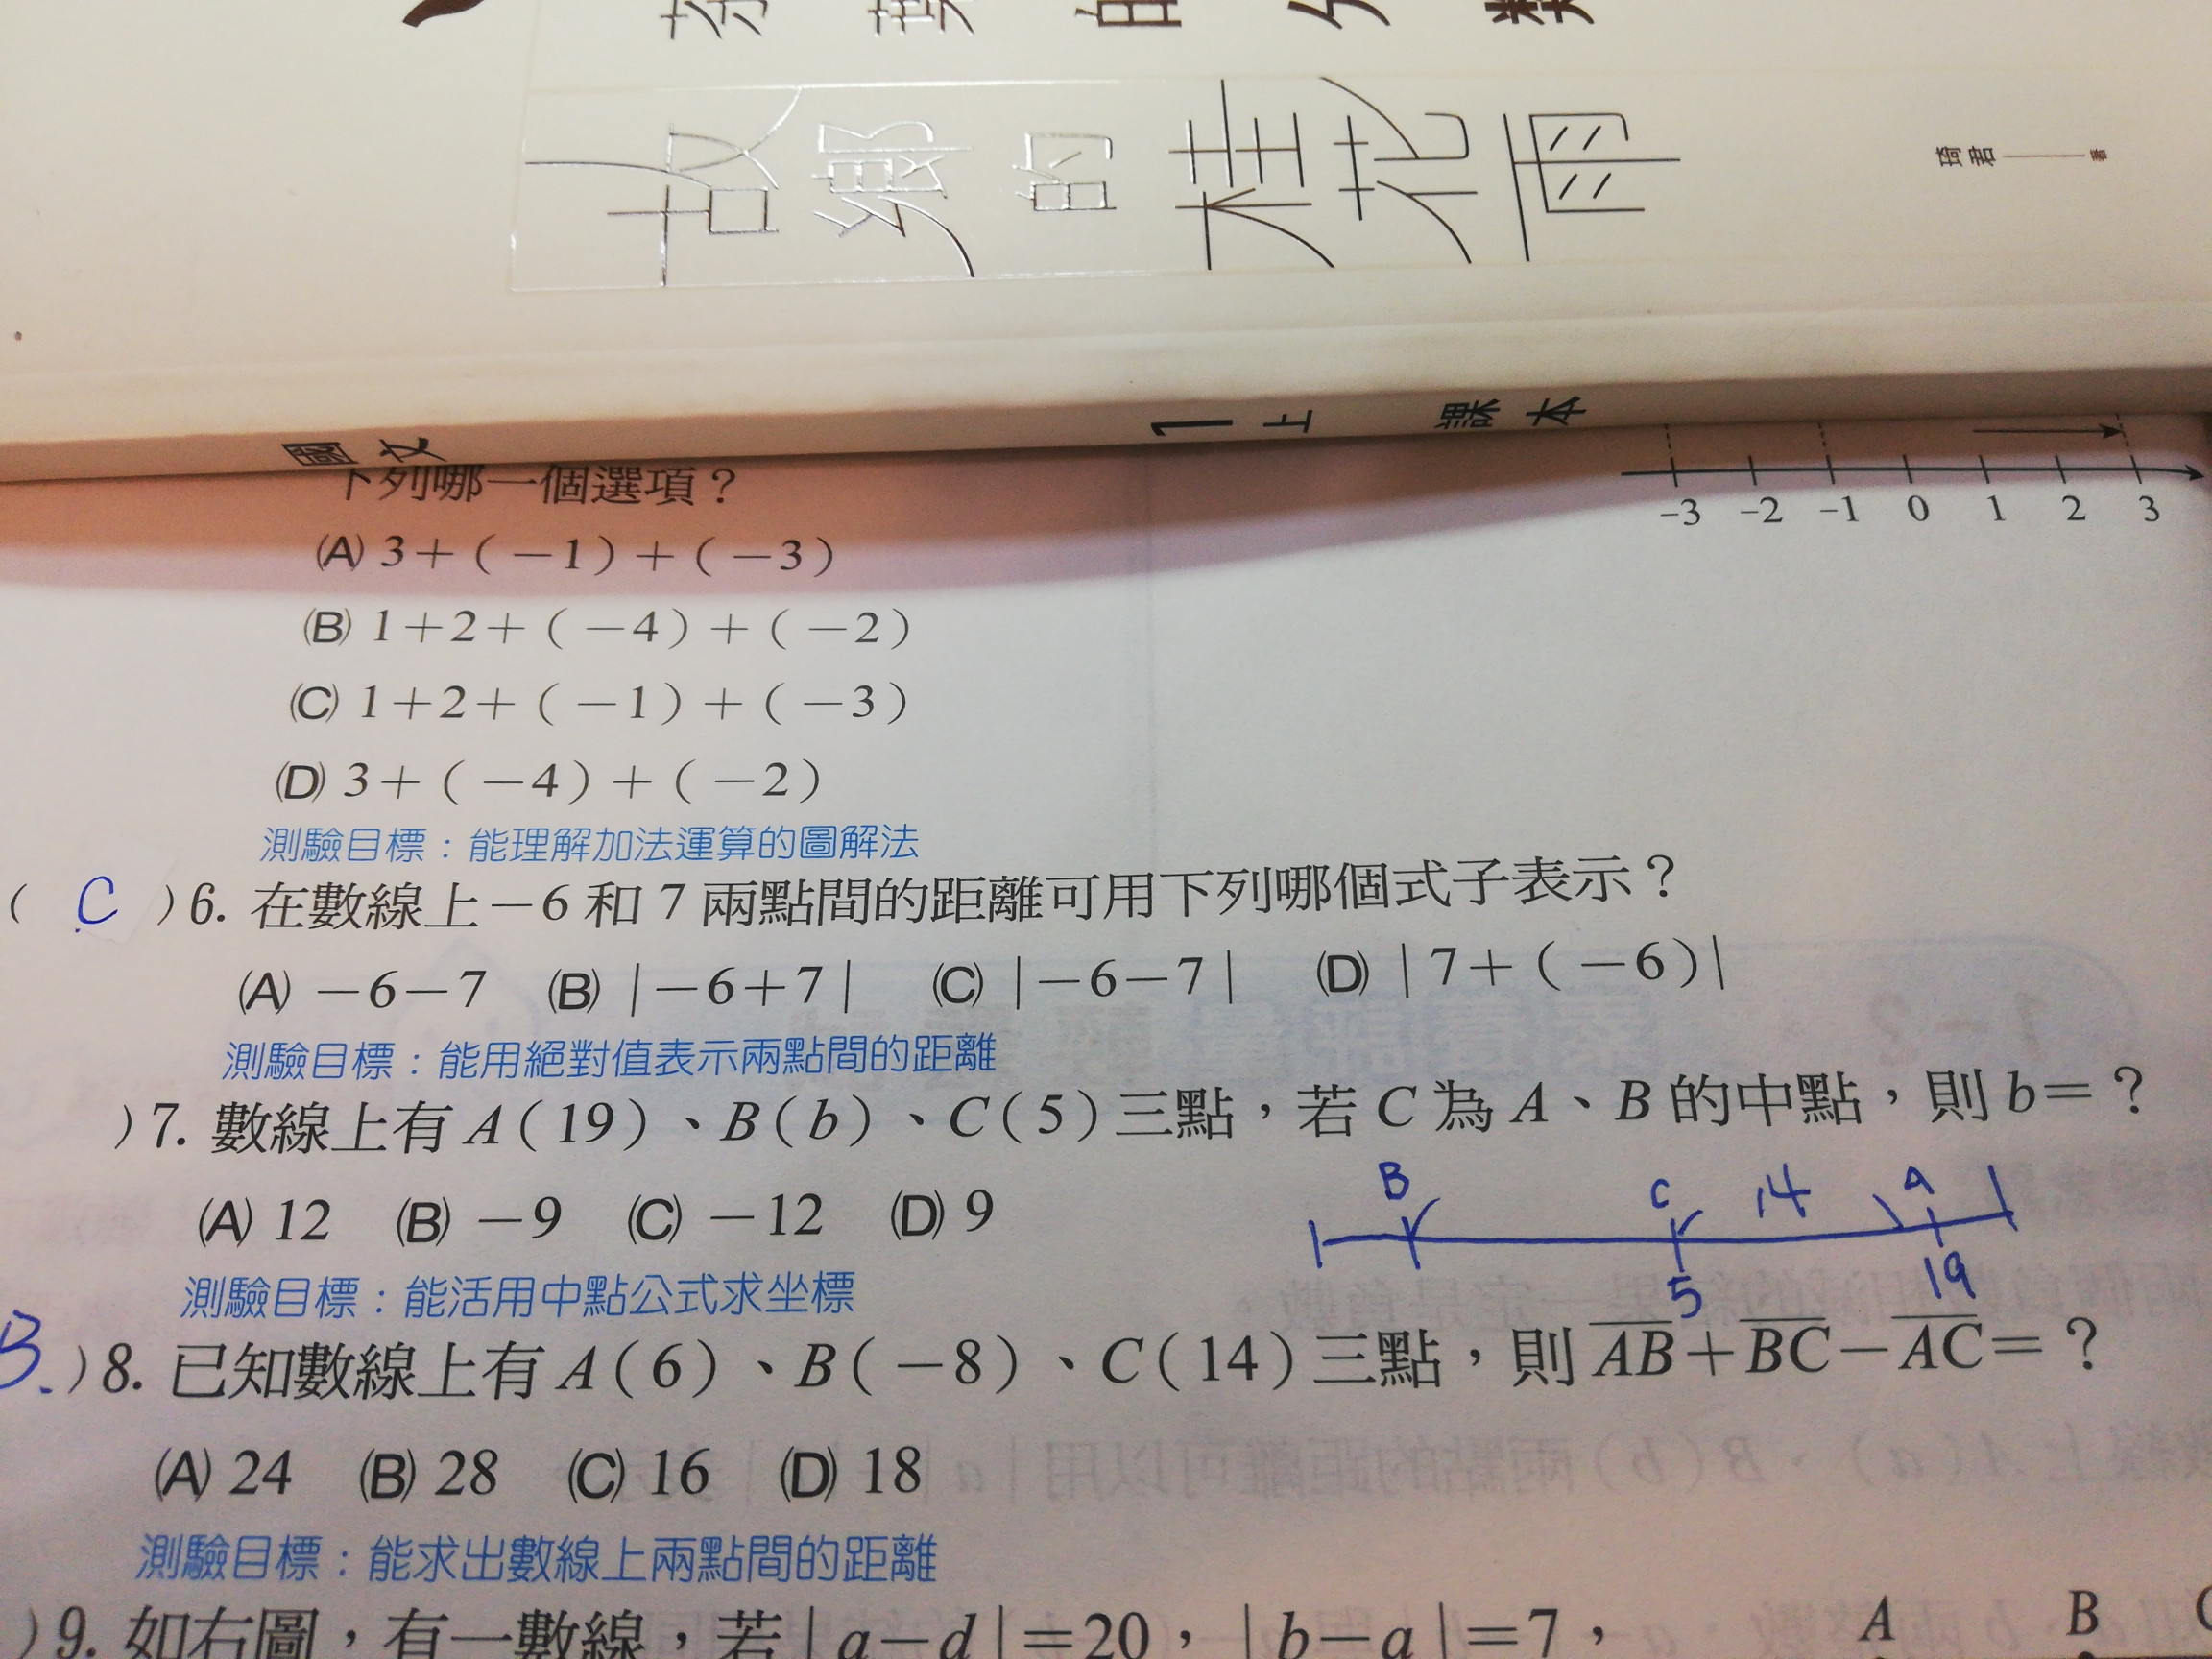 故鄉的桂花雨
琦君——著
國文 1上 課本
下列哪一個選項？
-3 -2 -1 0 1 2 3
(A) 3＋(－1)＋(－3)
(B) 1＋2＋(－4)＋(－2)
(C) 1＋2＋(－1)＋(－3)
(D) 3＋(－4)＋(－2)
測驗目標：能理解加法運算的圖解法
( C )6. 在數線上－6 和 7 兩點間的距離可用下列哪個式子表示？
(A) －6－7 (B) |－6＋7| (C) |－6－7| (D) |7＋(－6)|
測驗目標：能用絕對值表示兩點間的距離
)7. 數線上有 A(19)、B(b)、C(5)三點，若 C 為 A、B 的中點，則 b＝？
B C 14 A
(A) 12 (B) －9 (C) －12 (D) 9
5 19
測驗目標：能活用中點公式求坐標
B.)8. 已知數線上有 A(6)、B(－8)、C(14)三點，則 AB＋BC－AC＝？
(A) 24 (B) 28 (C) 16 (D) 18
測驗目標：能求出數線上兩點間的距離
)9. 如右圖，有一數線，若|a－d|＝20，|b－a|＝7，
A B C